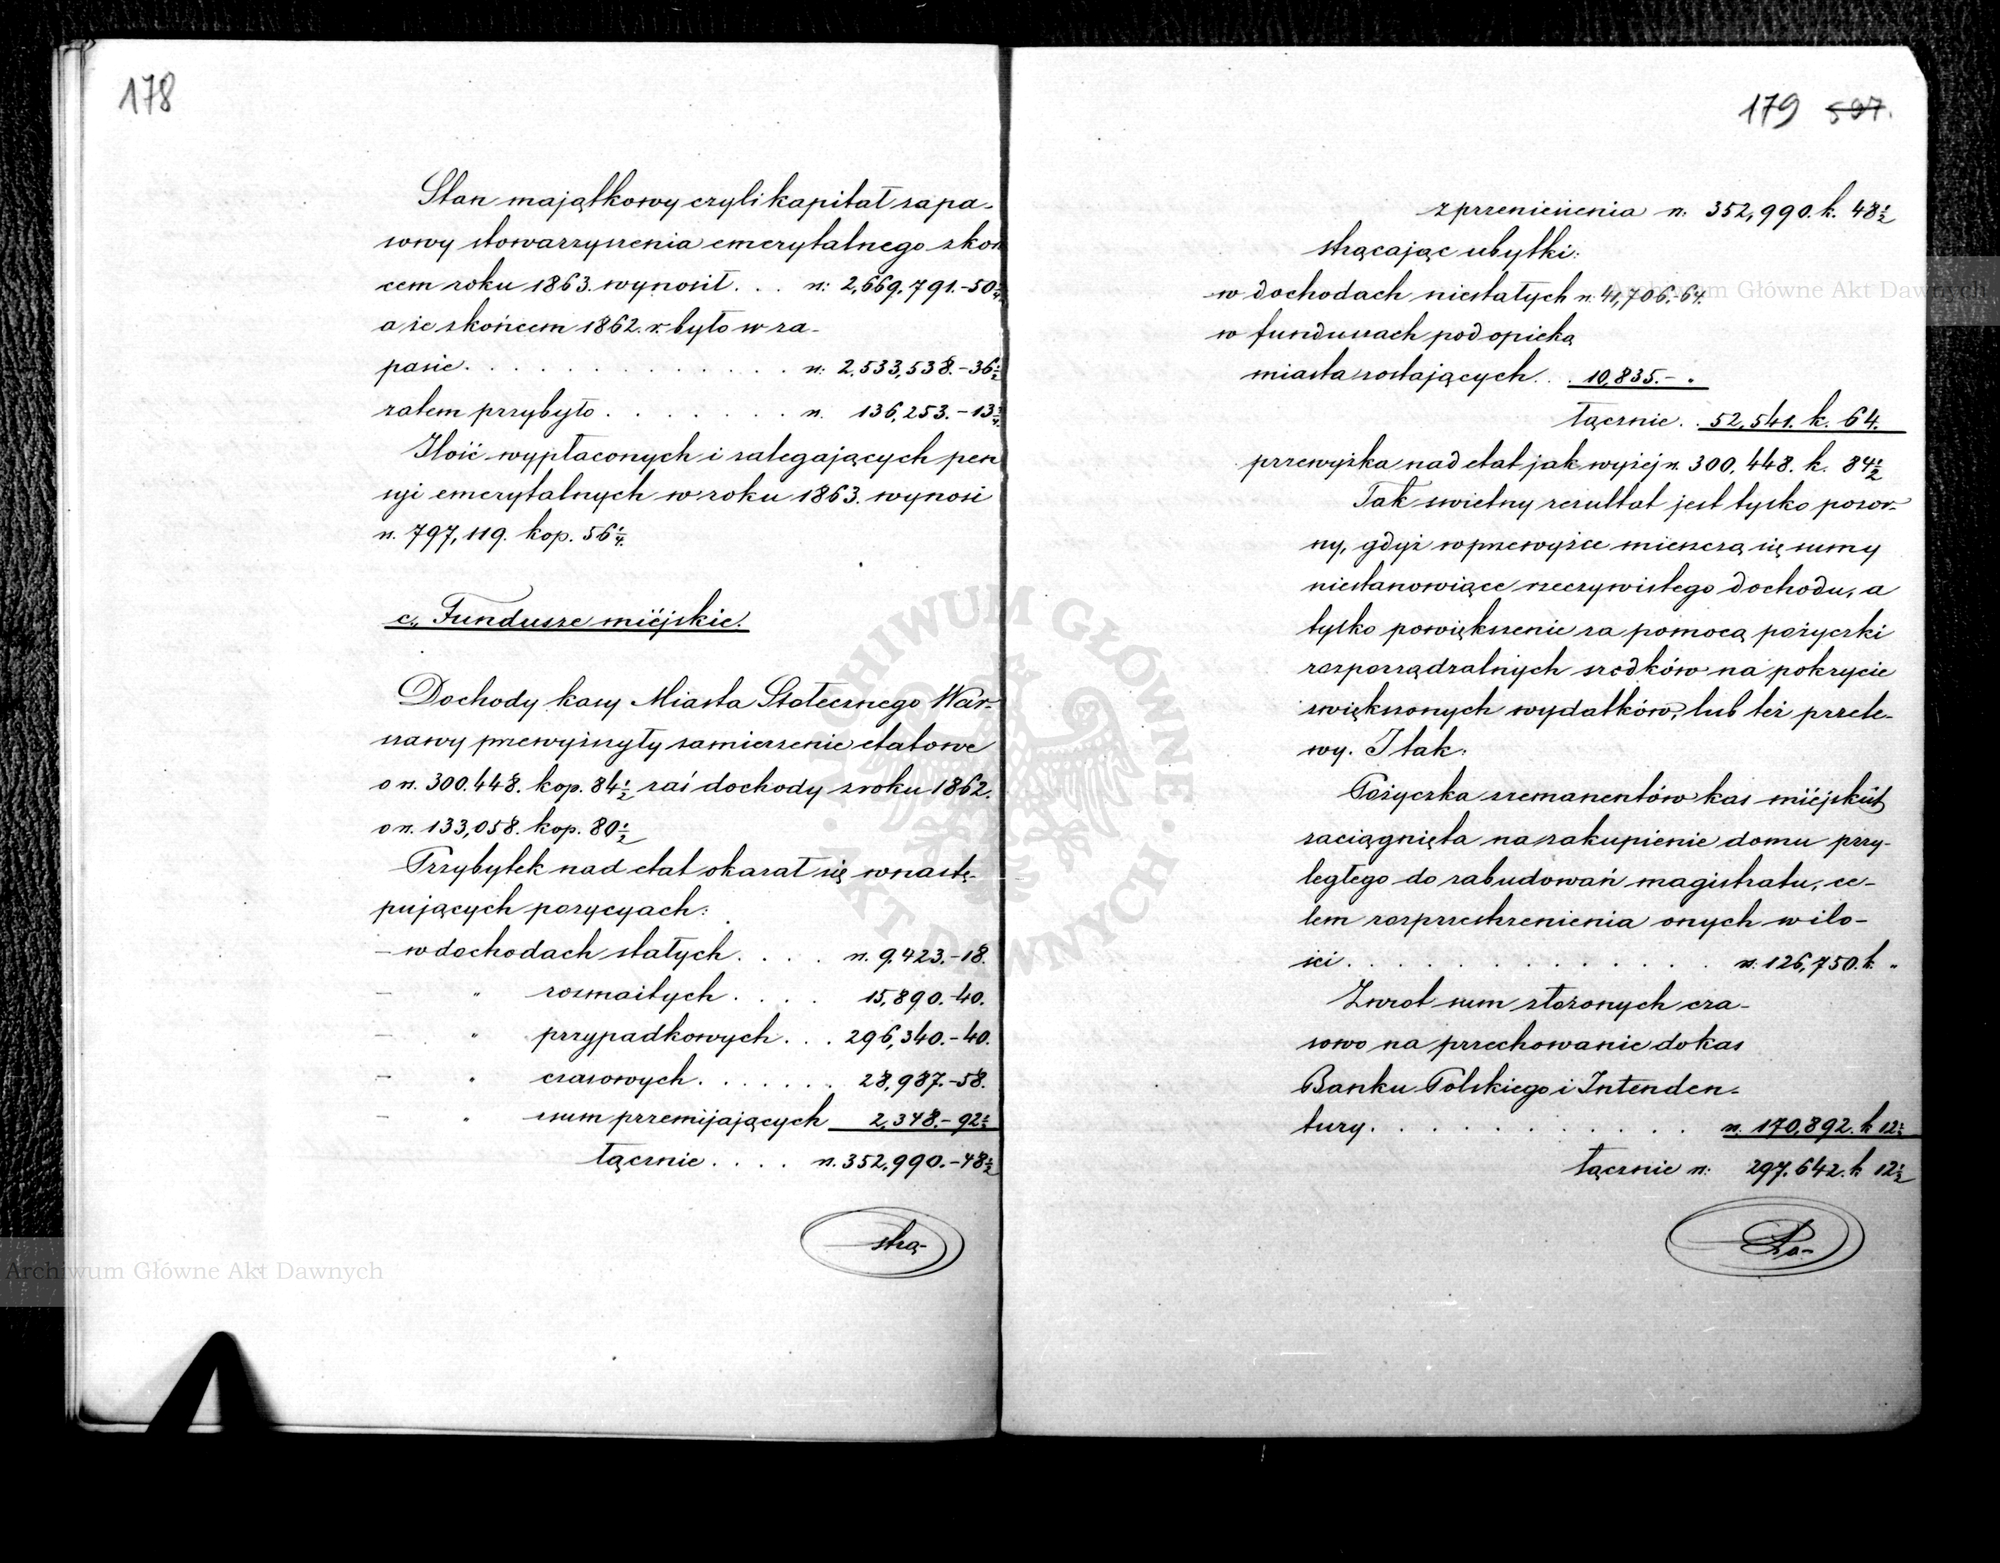 178
Stan majątkowy czyli kapitał zapa-
sowy stowarzyszenia emerytalnego z koń
cem roku 1863. wynosił . . . rs: 2,669,791.-50¼
a że z końcem 1862. r. było w za-
pasie . . . . . . . . . . . . rs: 2,533,538.-36½
zatem przybyło . . . . . . . rs. 136,253.-13¾
Ilość wypłaconych i zalegających pen
syi emerytalnych w roku 1863. wynosi
rs. 797,119. kop. 56¼.
c., Fundusze miéjskie.
Dochody kasy Miasta Stołecznego War-
szawy przewyższyły zamierzenie etatowe
o rs. 300.448. kop. 84½ zaś dochody z roku 1862.
o rs. 133,058. kop. 80½
Przybytek nad etat okazał się w nastę-
pujących pozycyach:
— w dochodach stałych . . . . rs. 9,423.-18.
— " rozmaitych . . . . 15,890.-40.
— " przypadkowych . . . 296,340.-40.
— " czasowych . . . . . . . 28,987.-58.
— " sum przemijających 2,348.-92½
łącznie . . . . rs. 352,990.-48½
strą-
179 597.
z przeniesienia rs: 352,990. k. 48½
strącając ubytki:
w dochodach niestałych rs. 41,706.-64.
w funduszach pod opieką
miasta zostających . . . 10,835.- "
łącznie . . 52,541. k. 64.
przewyżka nad etat jak wyżej rs. 300,448. k. 84½
Tak swietny rezultat jest tylko pozor-
ny, gdyż w przewyżce mieszczą się sumy
niestanowiące rzeczywistego dochodu, a
tylko powiększenie za pomocą pożyczki
rozporządzalnych srodków na pokrycie
zwiększonych wydatków, lub też przele-
wy. I tak:
Pożyczka z remanentów kas miéjskich
zaciągnięta na zakupienie domu przy-
ległego do zabudowań magistratu, ce-
lem rozprzestrzenienia onych w ilo-
ści . . . . . . . . . . . . . . rs. 126,750. k. "
Zwrot sum złożonych cza-
sowo na przechowanie do kas
Banku Polskiego i Intenden-
tury . . . . . . . . . . . . rs. 170,892. k. 12½
łącznie rs: 297,642. k. 12½
Po-
ARCHIWUM GŁÓWNE AKT DAWNYCH
Archiwum Główne Akt Dawnych
Archiwum Główne Akt Dawnych